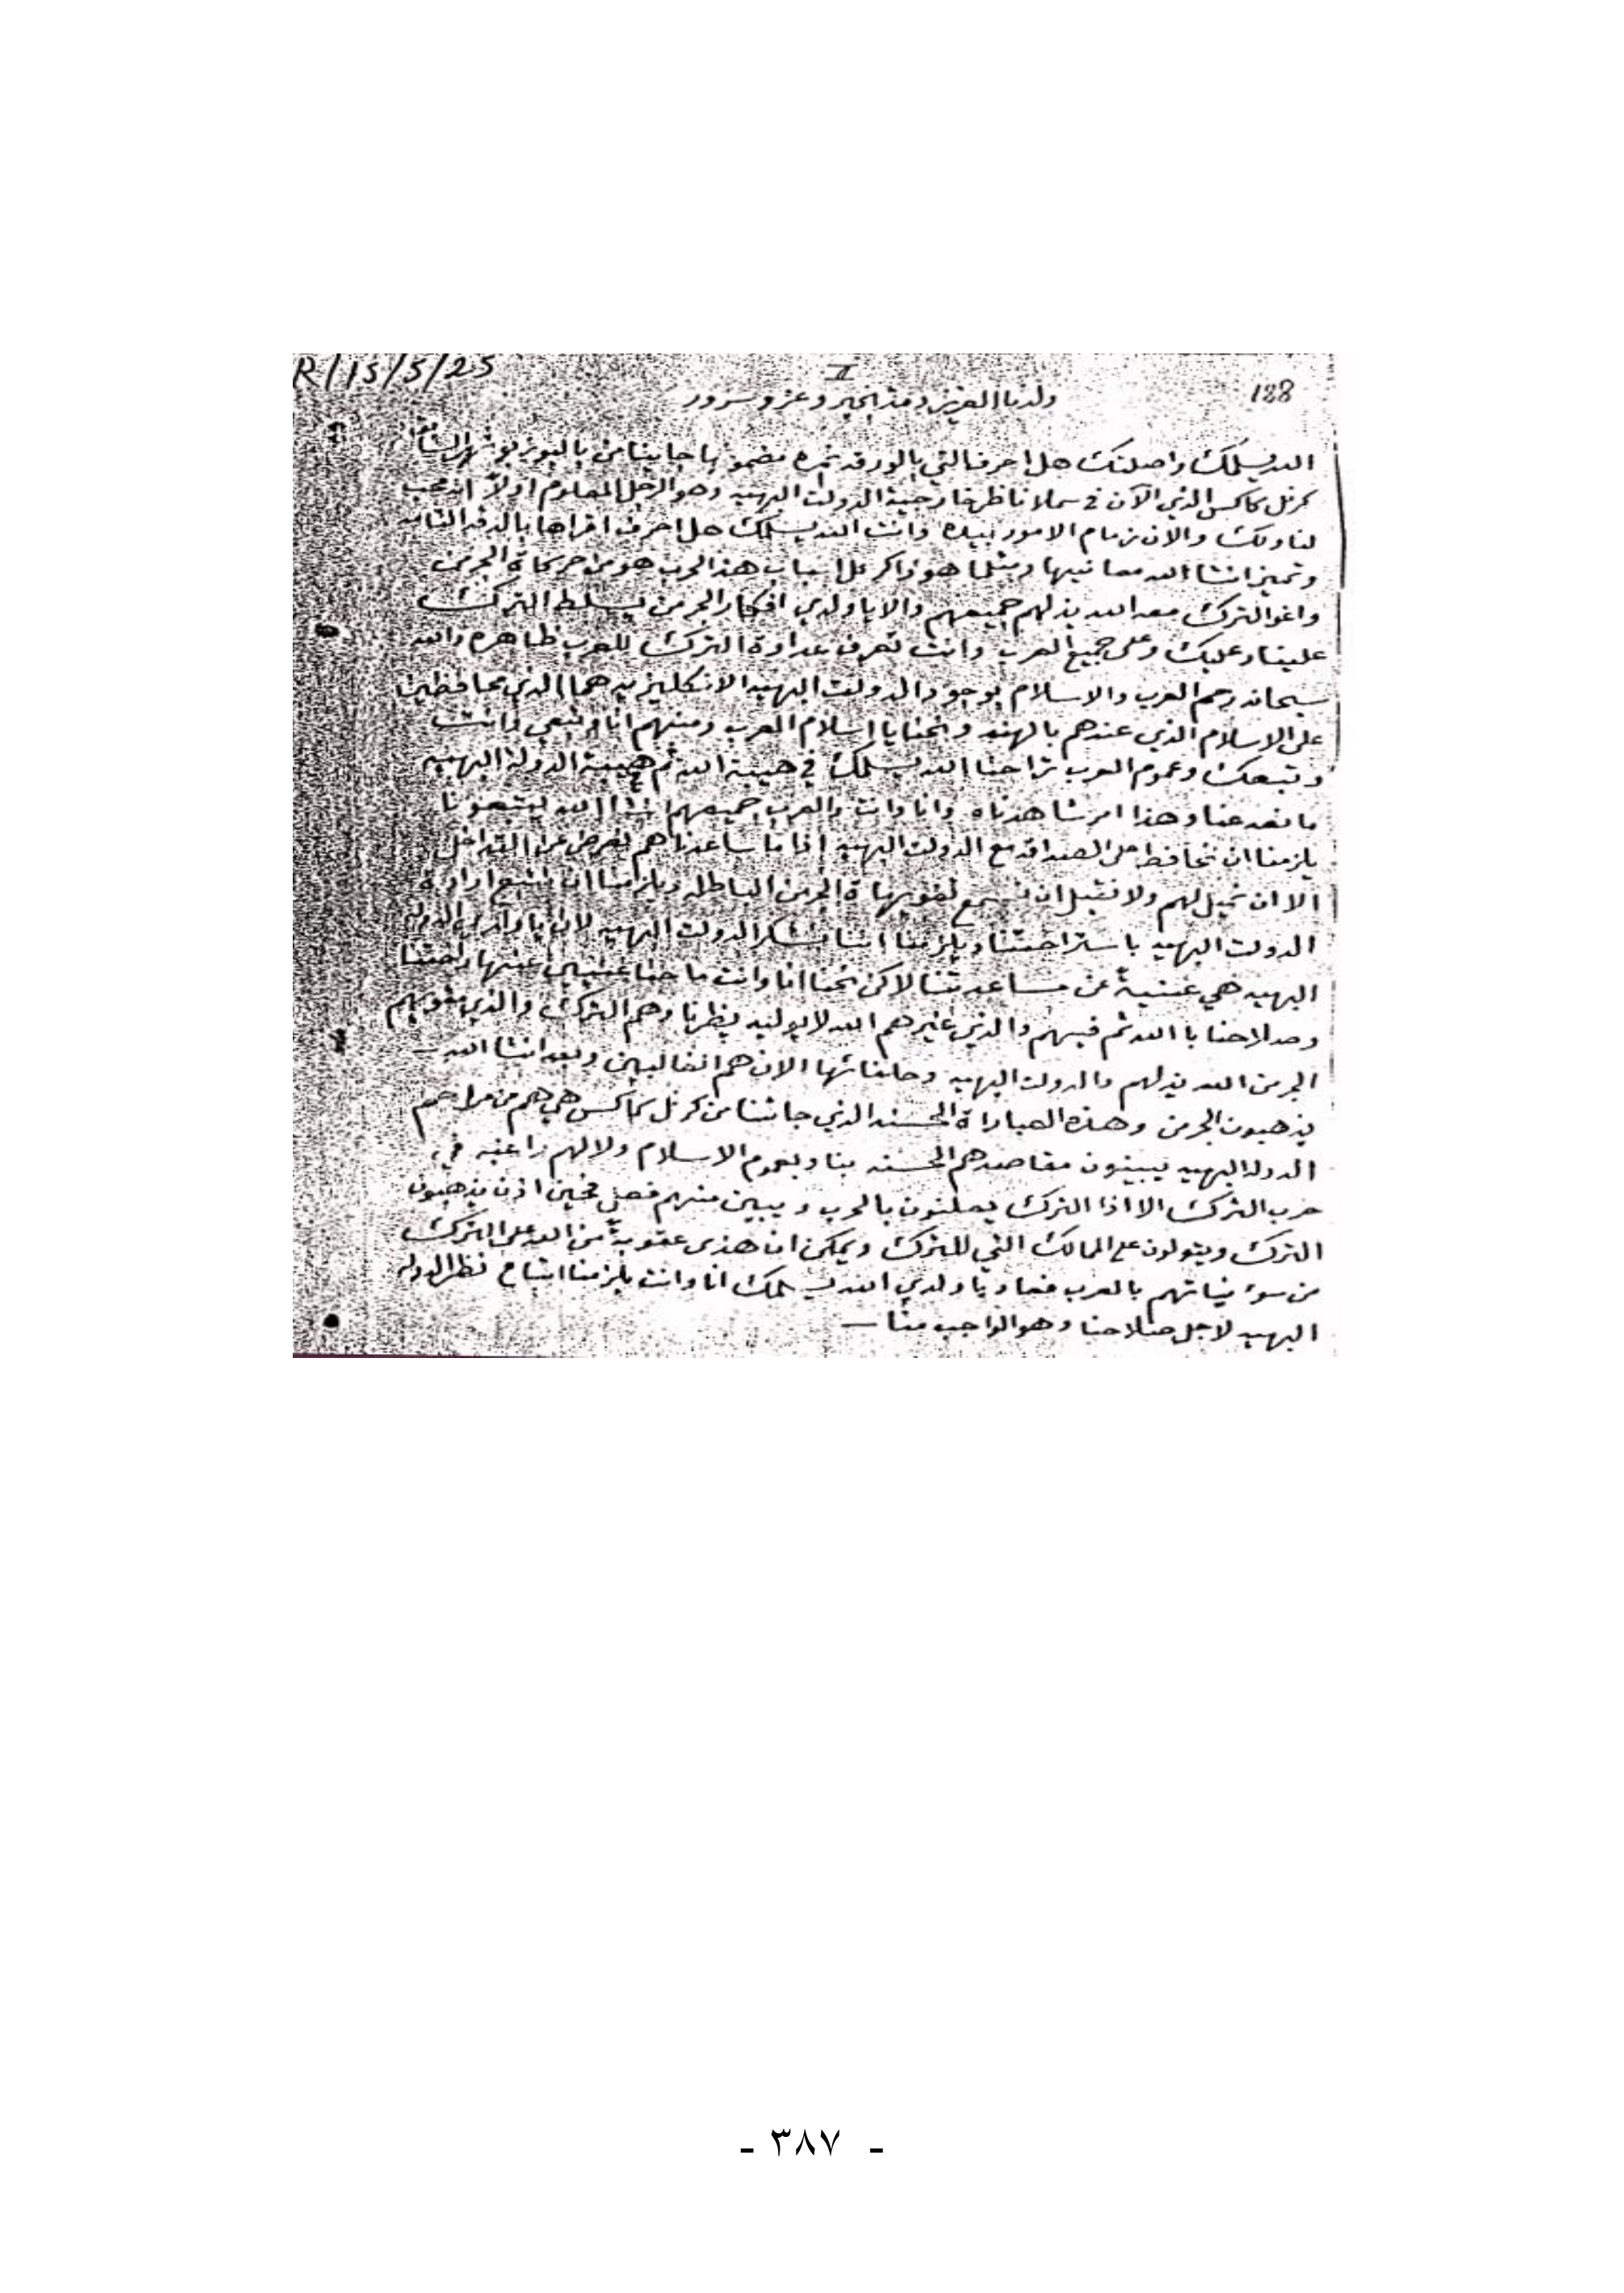 R/15/5/25
II
188
ولدنا العزيز دمتم بخير وعز وسرور
الله يسلمك واصلتك هل احرف التي بالورقه نمره مضمونها جا بينا من باليوز بو شهر
كرنل كاكس الذي الآن في سملا ناظر خارجية الدولت البهيه وهو الرجل المعلوم اولاً انه محب
لنا ولك والان زمام الامور بيده وانت الله يسلمك هل احرف اقراها بالدقه التامه
وتميز انشا الله معانيها ومثلما هو ذاكر عل اسباب هذا الحرب هو من حركاة الجرمن
واغو الترك معه الله يذلهم جميعهم والا يا ولدي افكار الجرمن يسلط الترك
علينا وعليك وعلى جميع العرب وانت تعرف عداوة الترك للعرب ظاهره والله
سبحانه رحم العرب والاسلام بوجود الدولت البهيه الانكليزيه هما الذي محافظين
على الاسلام الذي عندهم بالهند ونحنا يا اسلام العرب ومنهم انا وتبعي وانت
وتبعك وعموم العرب ترا حنا الله يسلمك في هيبة الله ثم هيبة الدولة البهيه
ما نعد عنا وهذا امر شاهدناه وانا وانت والعرب جميعهم الله
يلزمنا ان نحافظ على الصداقه مع الدولت البهيه اذا ما ساعدناهم نعرض عن التداخل
الا ان نميل لهم ولا نقبل ان نستمع لتمويهاة الجرمن الباطله ويلزمنا ان نتبع ارادة
الدولت البهيه باستراحتنا ويلزمنا اننا نشكر الدولت البهيه لان يا ولدي الدوله
البهيه هي غنيةً عن مساعدتنا لاكن نحنا انا وانت ما حنا غنيين عنها راحتنا
وصلاحنا با الله ثم فيهم والذي غيرهم الله لا يوليه ينظرنا وهم الترك والذي مقويهم
الجرمن الله يذلهم والدولت البهيه وحلفائها الان هم الغالبين وبعد انشا الله
يذهبون الجرمن وهذه العباراة الحسنه الذي جائتنا من كرنل كاكس هي هم من مراحم
الدوله البهيه يبينون مقاصدهم الحسنه بنا وبعموم الاسلام ولا لهم راغبه في
حرب الترك الا اذا الترك يعلنون بالحرب ويبين منهم فحين اذن يذهبون
الترك ويتولون على الممالك التي للترك ويمكن ان هذي عقوبةً من الله على الترك
من سوء نياتهم بالعرب فعاد يا ولدي الله يسلمك انا وانت يلزمنا اتباع نظر الدوله
البهيه لاجل صلاحنا وهو الواجب منا —
- ٣٨٧ -